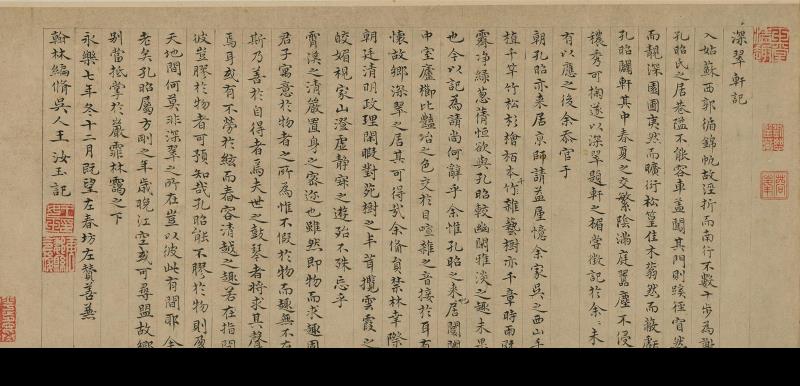 深翠軒記
入姑蘇西郭循錦帆故涇折而南行不數十步為謝
孔昭氏之居巷隘不能容車蓋闢其門則蹊徑窅然
而靚深園圃夷然而曠衍松篁佳木蓊然而蔽虧
孔昭闢軒其中春夏之交繁陰滿庭囂塵不侵
穠秀可掬遂以深翠題軒之楣嘗徵記於余未
有以應之後余忝官于
朝孔昭亦來居京師請益厪憶余家吳之西山手
植千竿竹松杉檜栢本竹雜藝樹亦千章時雨既
霽淨綠蔥蒨恒欲與孔昭較幽閒雅淡之趣未果
也今以記為請尚何辭乎余惟孔昭之來居闤闠
中室廬櫛比豔冶之色交於目喧雜之音接於耳
懷故鄉深翠之居其可得哉余備員禁林幸際
朝廷清明政理閒暇對苑樹之丰茸攬雲霞之
皎媚視家山澄虛靜寂之遊殆不殊焉乎
霄漢之清嚴置身之密迩也雖然即物而求趣固
君子寓意於物者之所為惟不假於物而趣無不在
斯乃善於自得者焉夫世之鼓琴者將求其聲
焉耳或有不勞於絃而春容清越之趣若在指間
彼豈膠於物者可預知哉孔昭能不膠於物則
天地間何莫非深翠之所在豈以彼此有間耶余
老矣孔昭屬方剛之年歲晚江空或可尋盟故鄉
別當抵掌於巖霏林靄之下
永樂七年冬十二月既望左春坊左贊善兼
翰林編脩吳人王汝玉記